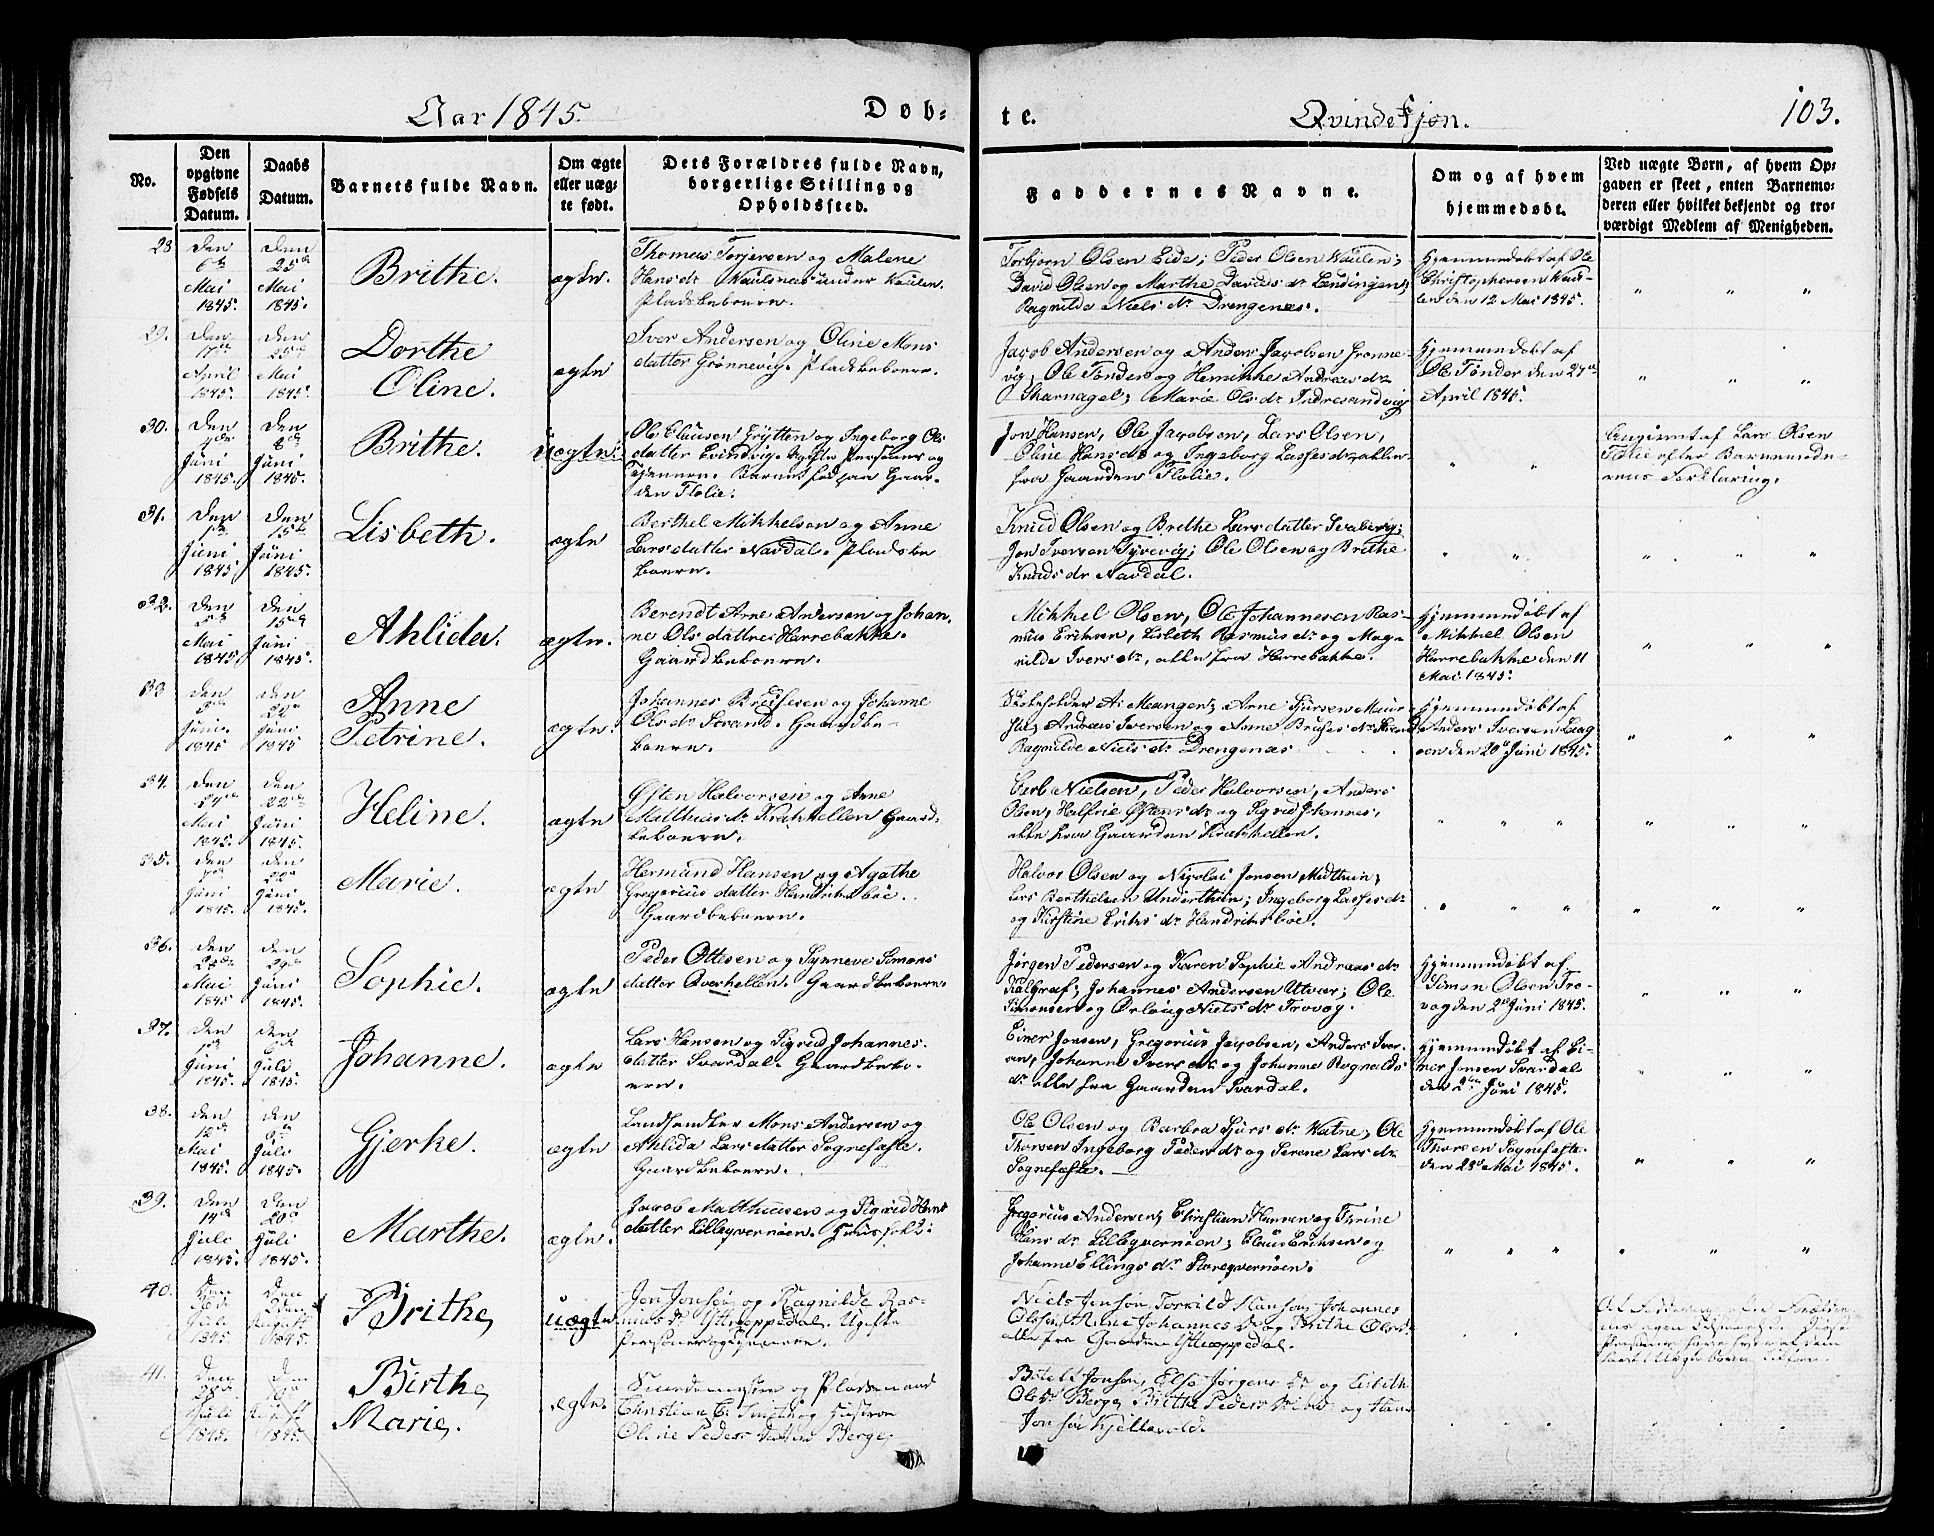 Aar 1845.
Døb-
te.
Qvindekjøn.
103.
No.
Den
opgivne
Fødsels
Datum.
Daabs
Datum.
Barnets fulde Navn.
Om ægte
eller uæg-
te født.
Dets Forældres fulde Navn,
borgerlige Stilling og
Opholdssted.
Faddernes Navne.
Om og af hvem
hjemmedøbt.
Ved uægte Børn, af hvem Op-
gaven er skeet, enten Barnemo-
deren eller hvilket bekjendt og tro-
værdigt Medlem af Menigheden.
28
den
6te
Mai
1845.
den
25de
Mai
1845.
Brithe.
ægte.
Thomas Torjersen og Malene
Hans dr under
Pladsbeboere.
Torbjørn Olsen Eide; Peder Olsen
David Olsen og Marthe Davids dr
Ragnilde Niels dr Drengenæs.
Hjemmedøbt af Ole
Christophersen
den 12 Mai 1845.
29.
den
17de
April
1845.
den
25de
Mai
1845.
Dorthe
Oline.
ægte
Iver Andersen og Oline Mons
datter Grønnevig. Pladsbeboere.
Jacob Andersen og Anders Jacobsen Grønne-
vig, Ole Tønder og Andreas dr
Marie Ols dr Indresandvig
Hjemmedøbt af
Ole Tønder den 27de
April 1845.
30.
Den
Juni
1845.
Den
8de
Juni
1845.
Brithe.
uægte:
Ole Clausen Grytten og Ingeborg Ols
datter Evindvig. Ugifte Personer og
Tjenere. Barnet fød paa Gaar-
den Flolie.
Jon Hansen, Ole Jacobsen, Lars Olsen,
Oline Hans dr og Ingeborg Lasses dr, alle
fra Gaarden Flolie.
Angivet af Lars Olsen
Flolie efter Barnemode-
rens Forklaring.
31.
Den
Juni
1845.
Den
15de
Juni
1845.
Lisbeth.
ægte
Berthel Mikkelsen og Anne
Lars datter Navdal. Pladsbe
boere.
Knud Olsen og Brithe Lars datter
Jon Iversen Ole Olsen og Brithe
Knuds dr Navdal.
32.
Den
5te
Mai
1845
den
15de
Juni
1845.
Ahlida.
ægte.
Berendt Arne Andersen og Johan-
ne Ols datter Herrebakke.
Gaardbeboere.
Mikkel Olsen, Ole Johannesen Ras-
mus Eriksen, Lisbeth Rasmus dr og Mag-
nilde Ivers dr, alle fra Herrebakke.
Hjemmedøbt af
Mikkel Olsen
Herrebakke den 11
Mai 1845.
33
den
Juni.
1845
den
22de
Juni
1845
Anne
Petrine.
ægte.
Johannes Brusesen og Johanne
Ols dr Strand. Gaardbe-
boere.
Skoleholder A. Mangen; Arne
Andreas Iversen og Anne Bruses dr Strand
Ragnilde Niels dr Drengenæs
Hjemmedøbt af
Anders Iversen
den 20de Juni 1845.
34.
den
Mai
1845.
den
22de
Juni
1845.
Heline.
ægte
Østen Halvorsen og Anne
Matthias dr Krakhellen Gaard-
beboere.
Nielsen, Peder Halvorsen, Anders
Olsen, Østens dr og Sigrid Johannes,
alle fra Gaarden Krakhellen.
35.
den
Juni
1845.
den
22de
Juni
1845.
Marie.
ægte
Hermund Hansen og Agathe
Gregorius datter
Gaardbeboere.
Halvor Olsen og Nicolai Jonsen Midthun;
Lars Berthelsen Underthun; Ingeborg Lasses dr
og Kirstine Eriks dr
36.
den
28de
Mai
1845
den
29de
Juni
1845.
Sophie.
ægte
Peder Ottesen og Synneve Simons
datter Qverhellen. Gaardbeboere.
Jørgen Pedersen og Karen Sophie Andreas dr
Kalgraf; Johannes Andersen Utvær; Ole
Simonsen og Orloug Niels dr Trovog.
Hjemmedøbt af
Simon Olsen Tro-
vog den 2de Juni 1845.
37.
den
Juni
1845.
den
6te
Juli
1845.
Johanne.
ægte
Lars Hansen og Sigrid Johannes-
datter Svardal. Gaardbebo-
ere.
Einer Jonsen, Gregorius Jacobsen, Anders Iver-
sen, Johanne Ivers dr og Johanne Rognalds
dr alle fra Gaarden Svardal.
Hjemmedøbt af Ei-
ner Jonsen Svardal
den 2den Juni 1845.
38.
den
12de
Mai
1845.
den
Juli
1845.
Gjerke.
ægte
Landhandler Mons Andersen og
Ahlida Lars datter Sognefæste.
Gaardbeboere.
Ole Olsen og Barbra Sjurs dr Vatne; Ole
Thorsen Ingeborg Peders dr og Serene Lars dr
Sognefæste.
Hjemmedøbt af Ole
Thorsen Sognefæste.
den 28de Mai 1845.
39.
den
14de
Juli
1845.
Den
20de
Juli
1845.
Marthe.
ægte.
Jacob Matthiasen og Sigrid Hans
datter Lilleqvernøen. Huusfolk:
Gregorius Andersen; Christian Hansen og Thrine
Hans dr Lilleqvernøen; Claus Eriksen og
Johanne Ellings dr Storeqvernøen.
40.
Den
Juli
1845.
Den
3den
August
1845.
Brithe,
uægte
Jon Jonsøn og Ragnilde Ras-
mus dr Ugifte
Personer
Niels Jensøn, Torkild Hansøn, Johannes
Olsøn, Anne Johannes dr og Brithe Ols dr
alle fra Gaarden
41.
den
28de
Juli
1845.
Den
10de
August
1845.
Birthe,
Marie,
ægte.
og Pladsmand
Christian C. Smith og Hustroe
Oline Peders datter Berge,
Botolf Jonsøn, Else Jørgens dr og Lisbeth
Ols dr Berge, Brithe Peders dr og Hans
Jonsøn Kjellevold.